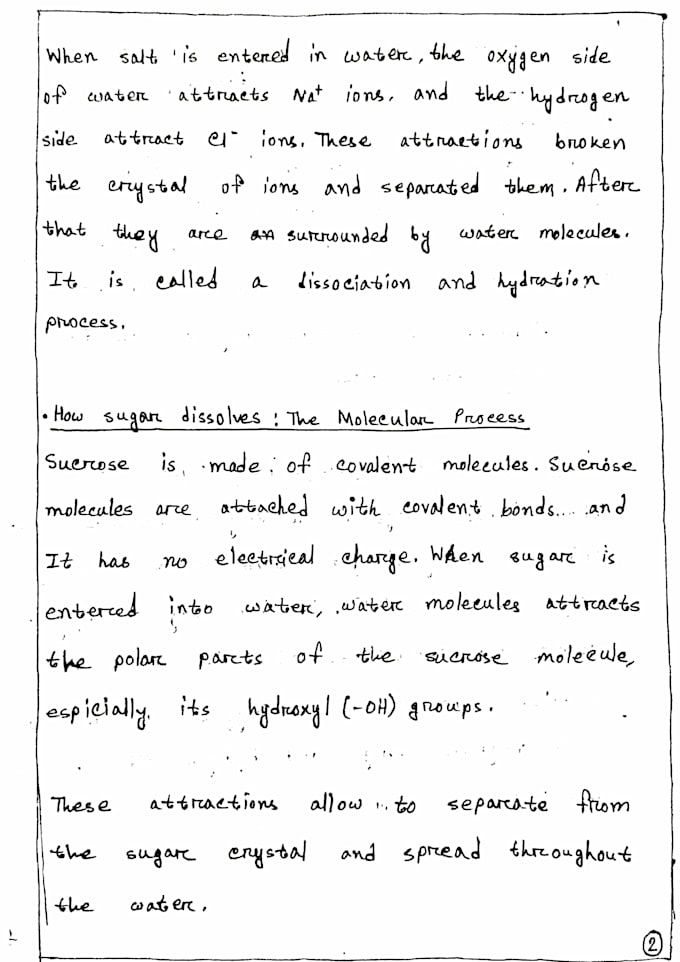 When salt is entered in water, the oxygen side
of water attracts Na⁺ ions. and the hydrogen
side attract Cl⁻ ions. These attractions broken
the crystal of ions and separated them. After
that they are surrounded by water molecules.
It is called a dissociation and hydration
process.
• How sugar dissolves : The Molecular Process
Sucrose is made of covalent molecules. Sucrose
molecules are attached with covalent bonds.... and
It has no electrical charge. When sugar is
entered into water, water molecules attracts
the polar parts of the sucrose molecule,
espicially its hydroxyl (-OH) groups.
These attractions allow to separate from
the sugar crystal and spread throughout
the water.
2